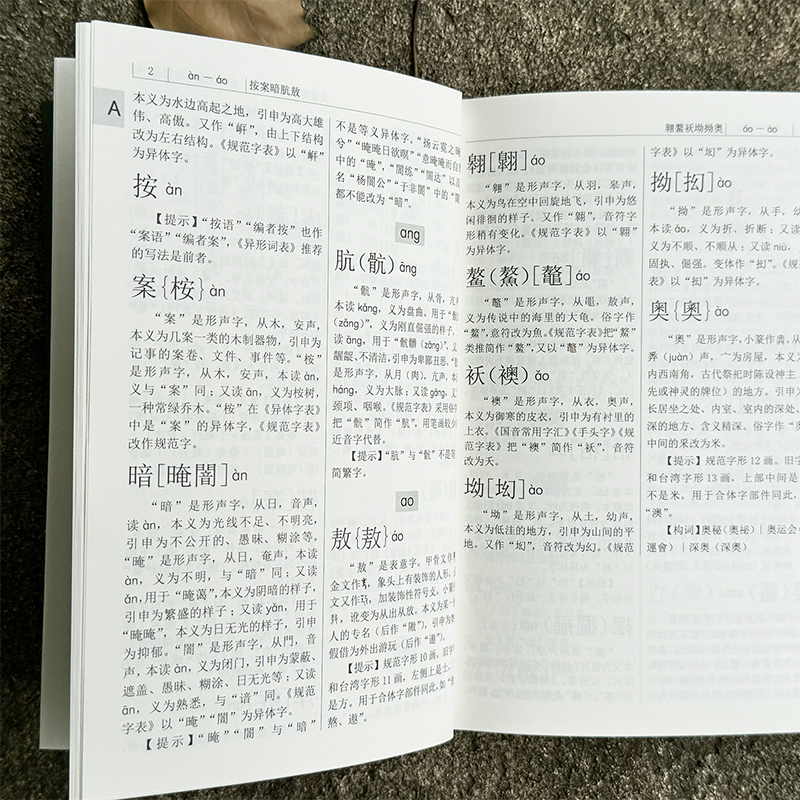 2 àn — áo 按案暗肮敖
A
本义为水边高起之地，引申为高大雄
伟、高傲。又作“㟁”，由上下结构
改为左右结构。《规范字表》以“㟁”
为异体字。
按 àn
【提示】“按语”“编者按”也作
“案语”“编者案”，《异形词表》推荐
的写法是前者。
案{桉}àn
“案”是形声字，从木，安声，
本义为几案一类的木制器物，引申为
记事的案卷、文件、事件等。“桉”
是形声字，从木，安声，本读àn，
义与“案”同；又读ān，义为桉树，
一种常绿乔木。“桉”在《异体字表》
中是“案”的异体字，《规范字表》
改作规范字。
暗[晻闇]àn
“暗”是形声字，从日，音声，
读àn，本义为光线不足、不明亮，
引申为不公开的、愚昧、糊涂等。
“晻”是形声字，从日，奄声，本读
àn，义为不明，与“暗”同；又读
ǎn，用于“晻蔼”，本义为阴暗的样子，
引申为繁盛的样子；又读yǎn，用于
“晻晻”，本义为日无光的样子，引申
为抑郁。“闇”是形声字，从門，音
声，本读àn，义为闭门，引申为蒙蔽、
遮盖、愚昧、糊涂、日无光等；又读
ān，义为熟悉，与“谙”同。《规范
字表》以“晻”“闇”为异体字。
【提示】“晻”“闇”与“暗”
不是等义异体字。“扬云霓之晻
兮”“晻晻日欲暝”“意晻晻而自
中的“晻”，“闇练”“闇达”以及
名“杨闇公”“于非闇”中的“闇”
都不能改为“暗”。
ang
肮(骯)āng
“骯”是形声字，从骨，亢声，
本读kǎng，义为盘曲，用于“骯
(zǎng)”，义为刚直倔强的样子，
读āng，用于“骯髒(zāng)”，义
龌龊、不清洁，引申为卑鄙丑恶。“肮
是形声字，从月(肉)，亢声，本
háng，义为大脉；又读gāng，义
颈项、咽喉。《规范字表》采用俗
把“骯”简作“肮”，用笔画较少
近音字代替。
【提示】“肮”与“骯”不是等
简繁字。
ao
敖{敖}áo
“敖”是表意字，甲骨文作
金文作，象头上有装饰的人形，
文又作，加装饰性符号攴，小篆
，讹变为从出从放。本义为某一
人的专名（后作“獓”），引申为
假借为外出游玩（后作“遨”）。
【提示】规范字形10画，旧字
和台湾字形11画，左侧上是土，
是方。用于合体字部件同此，如“
熬、遨”。
翱鳌袄坳拗奥 áo — ào
翱[翺]áo
“翱”是形声字，从羽，皋声，
本义为鸟在空中回旋地飞，引申为悠
闲徘徊的样子。又作“翺”，音符字
形稍有变化。《规范字表》以“翺”
为异体字。
鳌(鰲)[鼇]áo
“鼇”是形声字，从黽，敖声，
义为传说中的海里的大龟。俗字作
“鰲”，意符改为魚。《规范字表》把“鰲”
类推简作“鳌”，又以“鼇”为异体字。
袄(襖)ǎo
“襖”是形声字，从衣，奥声，
本义为御寒的皮衣，引申为有衬里的
上衣。《国音常用字汇》《手头字》《规
范字表》把“襖”简作“袄”，音符
改为夭。
坳[㘭]ào
“坳”是形声字，从土，幼声，
本义为低洼的地方，引申为山间的平
地。又作“㘭”，音符改为幻。《规范
字表》以“㘭”为异体字。
拗[抝]ào
“拗”是形声字，从手，幼
本读ǎo，义为折、折断；又读
义为不顺、不顺从；又读niù，
固执、倔强。变体作“抝”。《规
范字表》以“抝”为异体字。
奥{奧}ào
“奥”是形声字，小篆作，从
𢍏(juàn)声，广为房屋，本义为
内西南角，古代祭祀时陈设神主
先或神灵的牌位）的地方。引申为
长居坐之处、内室、室内的深处、
深的地方、含义精深。俗字作“奥
中间的釆改为米。
【提示】规范字形12画。旧字
和台湾字形13画，上部中间是
不是米。用于合体字部件同此，
“澳”。
【构词】奥秘(奧祕)｜奥运会(
運會)｜深奥(深奧)